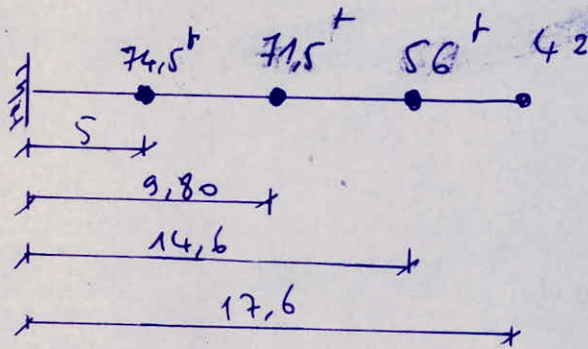 74,5t 71,5t 56t 42
5
9,80
14,6
17,6